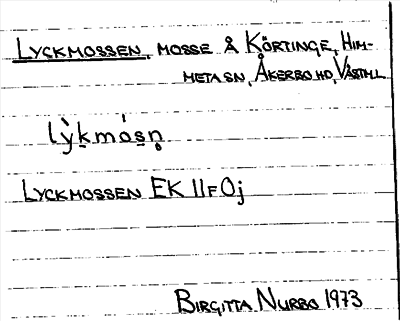 LYCKMOSSEN, MOSSE Å KÖRTINGE, HIM-
META SN, ÅKERBO HD, VÄSTML
lỳkmósn̥
LYCKMOSSEN EK 11F0j
BIRGITTA NURBO 1973